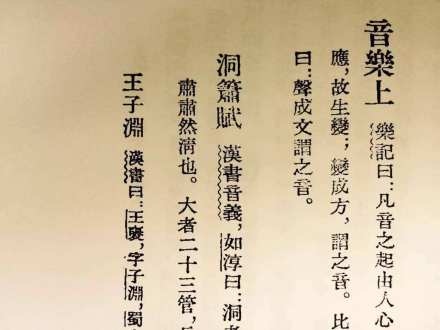 音樂上 樂記曰：凡音之起由人心
應，故生變；變成方，謂之音。比
曰：聲成文謂之音。
洞簫賦 漢書音義，如淳曰：洞者
肅肅然清也。大者二十三管，
王子淵 漢書曰：王襃，字子淵，蜀